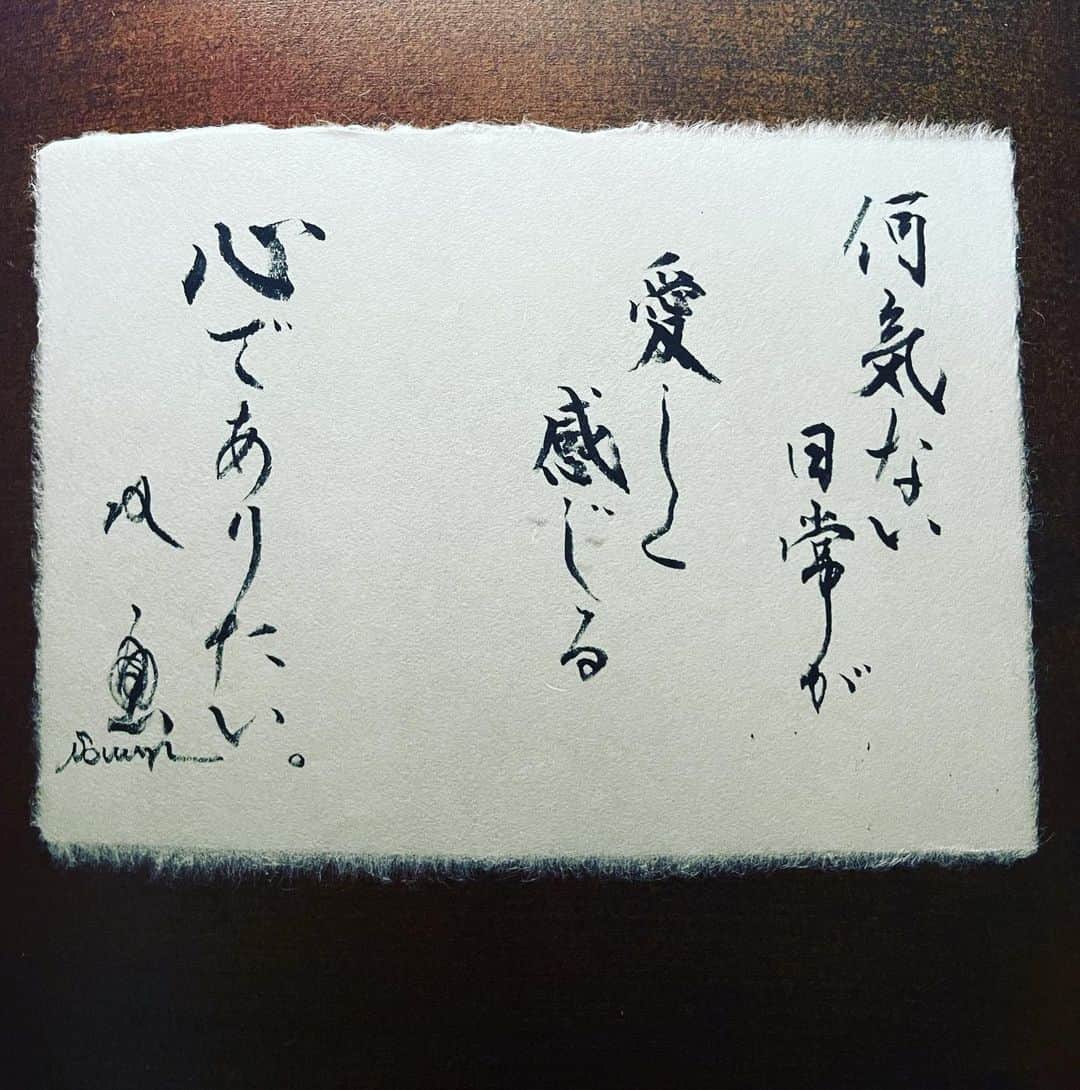 何気ない
日常が
愛しく
感じる
心でありたい。